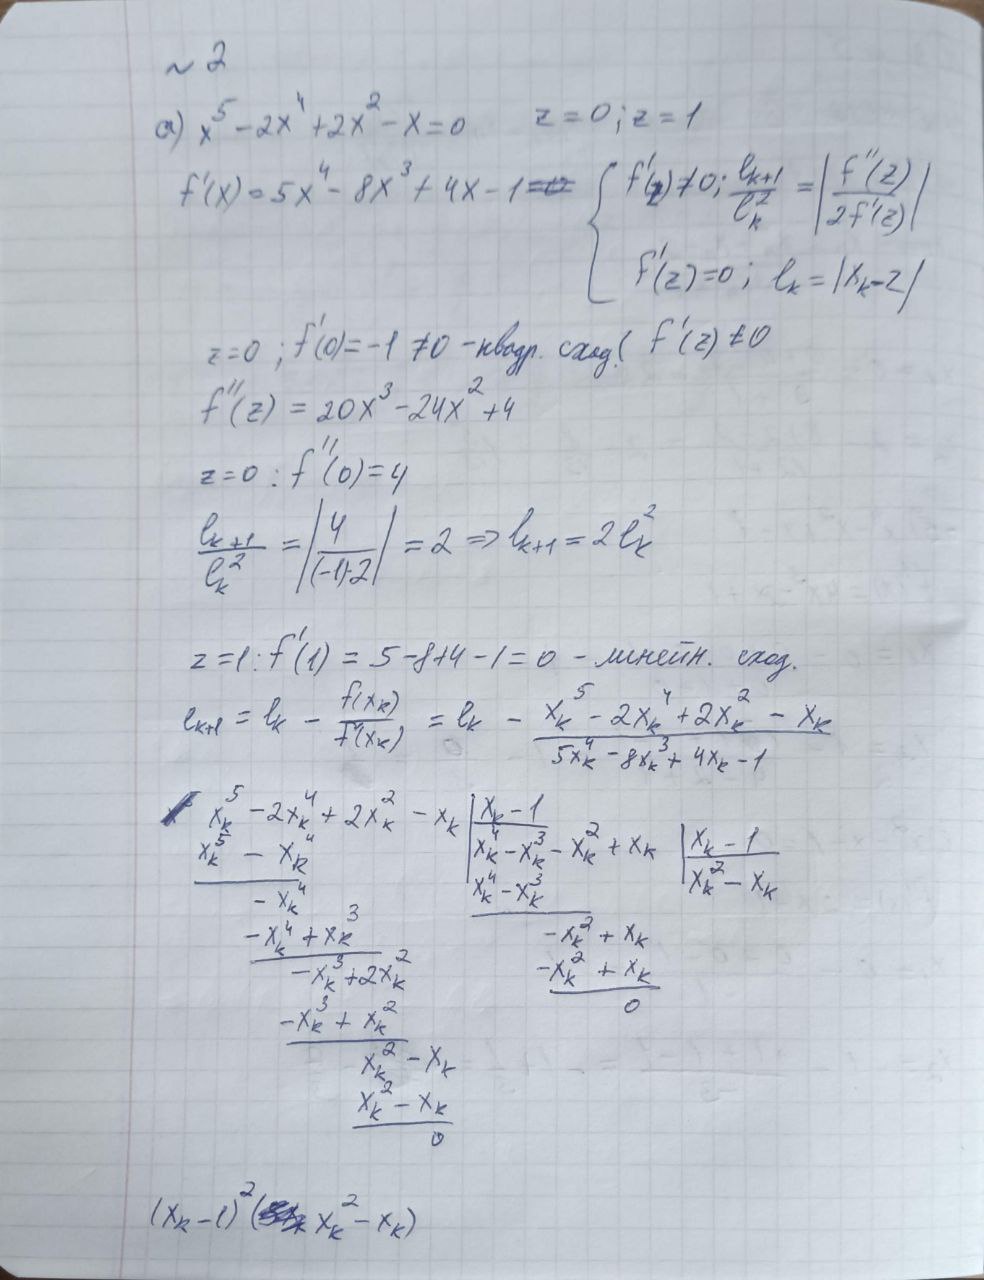 ~ 2
а) x⁵ - 2x⁴ + 2x² - x = 0    z = 0 ; z = 1
f'(x) = 5x⁴ - 8x³ + 4x - 1    { f'(z) ≠ 0 ; l_{k+1}/l_k² = |f''(z)/2f'(z)|
f'(z) = 0 ; l_k = |x_k - z|
z = 0 ; f'(0) = -1 ≠ 0 - квадр. сход. ( f'(z) ≠ 0
f''(z) = 20x³ - 24x² + 4
z = 0 : f''(0) = 4
l_{k+1}/l_k² = |4/(-1)·2| = 2 => l_{k+1} = 2l_k²
z = 1 : f'(1) = 5 - 8 + 4 - 1 = 0 - линейн. сход.
l_{k+1} = l_k - f(x_k)/f'(x_k) = l_k - (x_k⁵ - 2x_k⁴ + 2x_k² - x_k)/(5x_k⁴ - 8x_k³ + 4x_k - 1)
x_k⁵ - 2x_k⁴ + 2x_k² - x_k | x_k - 1
x_k⁵ - x_k⁴    x_k⁴ - x_k³ - x_k² + x_k | x_k - 1
- x_k⁴    x_k⁴ - x_k³    x_k² - x_k
- x_k⁴ + x_k³    - x_k² + x_k
- x_k³ + 2x_k²    - x_k² + x_k
- x_k³ + x_k²    0
x_k² - x_k
x_k² - x_k
0
(x_k - 1)² (x_k² - x_k)